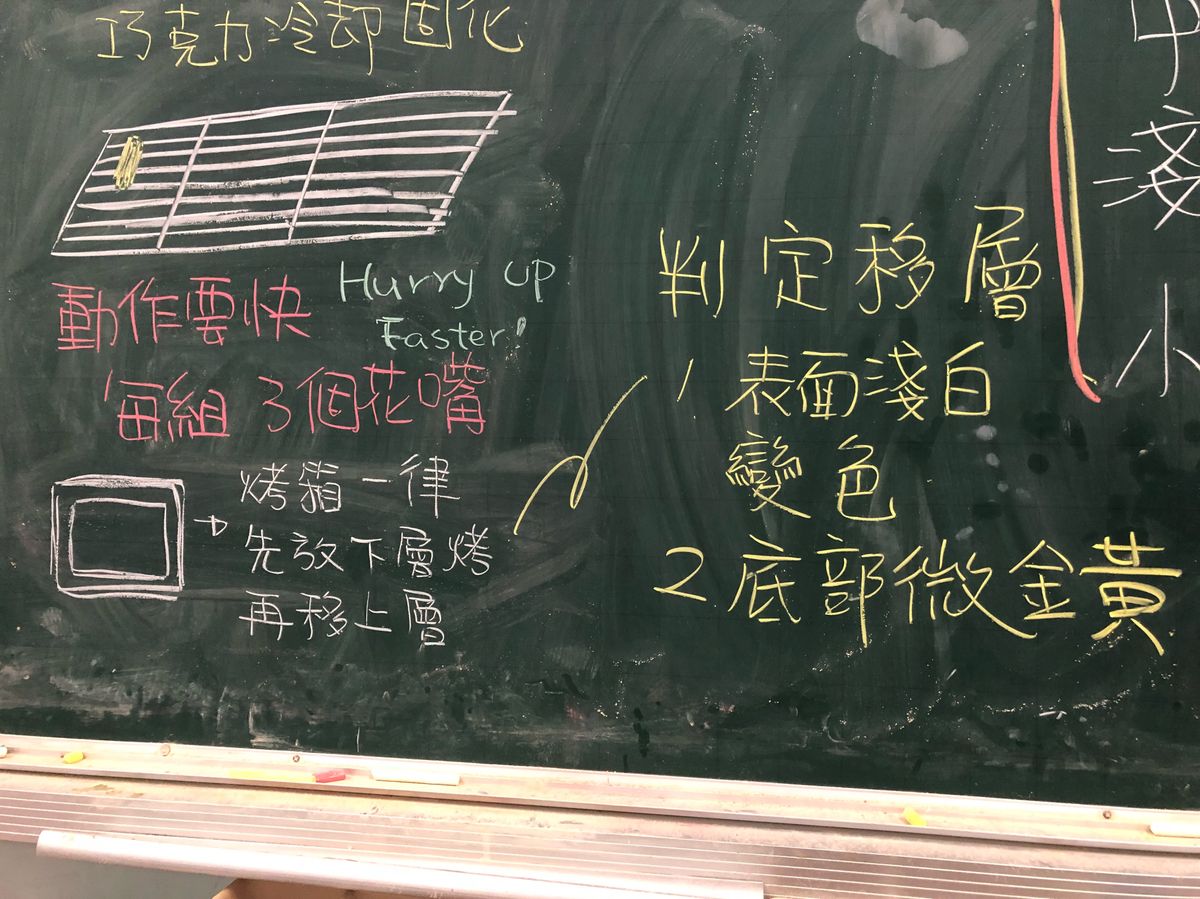 巧克力冷却固化
動作要快
Hurry up
Faster!
每組3個花嘴
烤箱一律
先放下層烤
再移上層
判定移層
1 表面淺白
變色
2.底部微金黃
中
小